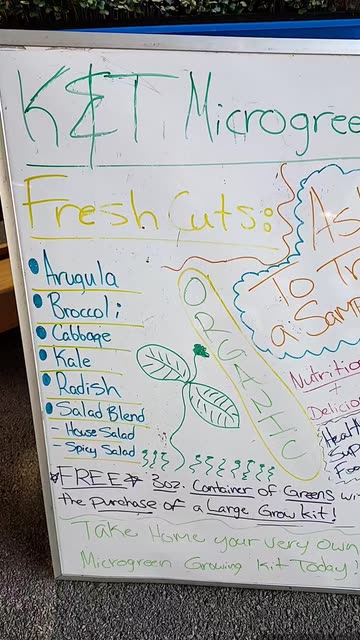 K&T Microgree
Fresh Cuts:
As
To Tr
a Sam
• Arugula
• Broccoli
• Cabbage
• Kale
• Radish
• Salad Blend
- House Salad
- Spicy Salad
ORGANIC
Nutritio
+
Delicio
Health
Sup
Foo
*FREE* 3oz. Container of Greens wi
the purchase of a Large Grow kit!
Take Home your very own
Microgreen Growing Kit Today!